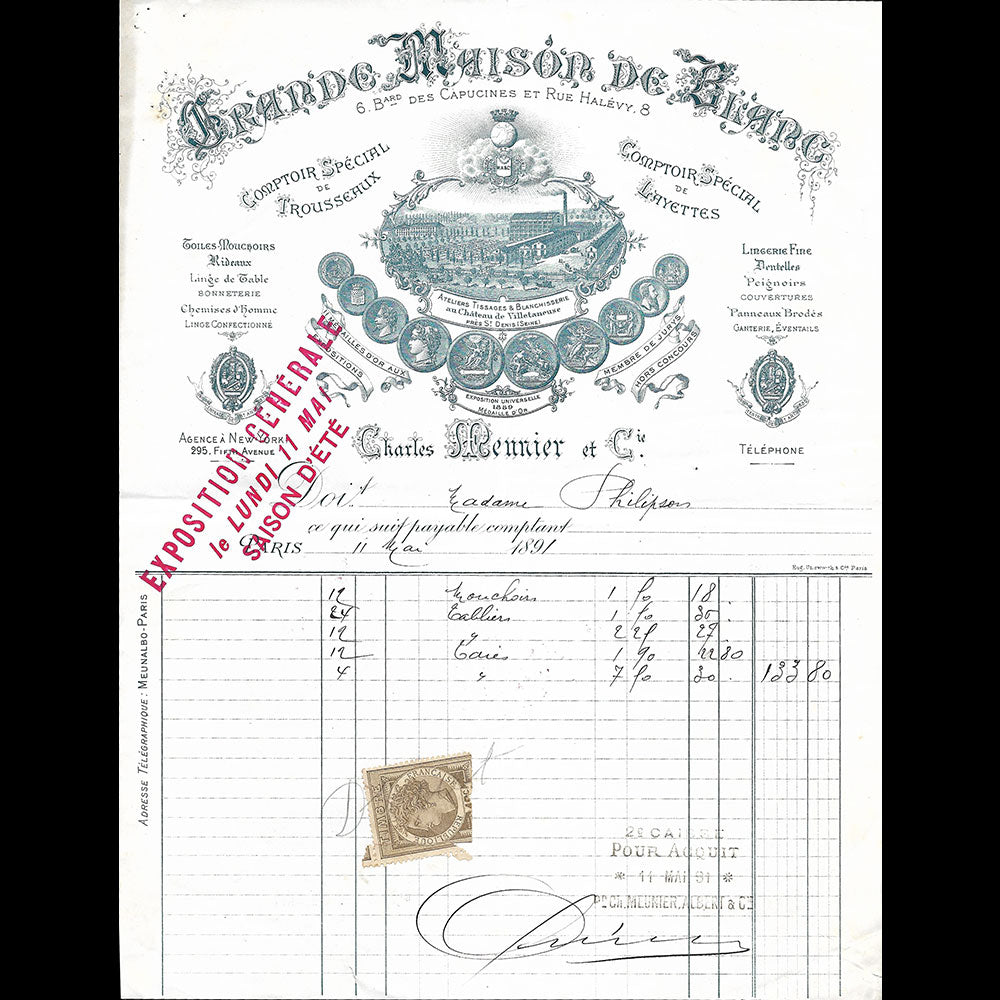 GRANDE MAISON DE BLANC
6. BARD DES CAPUCINES ET RUE HALÉVY. 8
COMPTOIR SPÉCIAL
DE
TROUSSEAUX
COMPTOIR SPÉCIAL
DE
LAYETTES
Toiles-Mouchoirs
Rideaux
Linge de Table
BONNETERIE
Chemises d'Homme
LINGE CONFECTIONNÉ
LINGERIE FINE
Dentelles
Peignoirs
COUVERTURES
Panneaux Brodés
GANTERIE, ÉVENTAILS
ATELIERS TISSAGES & BLANCHISSERIE
au Château de Villetaneuse
PRÈS ST DENIS (SEINE)
MÉDAILLES D'OR AUX
EXPOSITIONS
MEMBRE DE JURYS
HORS CONCOURS
EXPOSITION UNIVERSELLE
1889
MÉDAILLE D'OR
AGENCE À NEW-YORK
295. FIFTH AVENUE
Charles Meunier et Cie
TÉLÉPHONE
EXPOSITION GÉNÉRALE
le LUNDI 11 MAI
SAISON D'ÉTÉ
Doit Madame Philipson
ce qui suit payable comptant
PARIS 11 Mai 1891
12 Mouchoirs 1 50 18 .
24 Tabliers 1 50 36 .
12 " 2 25 27 .
12 Taies 1 90 22 80
4 " 7 50 30 . 133 80
ADRESSE TÉLÉGRAPHIQUE : MEUNALBO-PARIS
RÉPUBLIQUE FRANÇAISE
2e CAISSE
POUR ACQUIT
* 11 MAI 91 *
Pr CH. MEUNIER, ALBERT & Cie